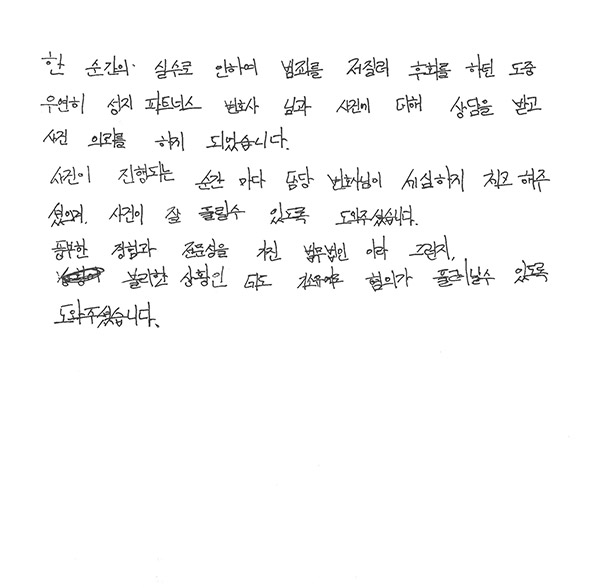 한 순간의 실수로 인하여 범죄를 저질러 후회를 하던 도중
우연히 성지 파트너스 변호사 님과 사건에 대해 상담을 받고
사건 의뢰를 하게 되었습니다.
사건이 진행되는 순간 마다 담당 변호사님이 세심하게 체크 해주
셨으며, 사건이 잘 풀릴수 있도록 도와주셨습니다.
풍부한 경험과 전문성을 가진 법무법인 이라 그런지,
불리한 상황인 데도 혐의가 풀려날수 있도록
도와주셨습니다.